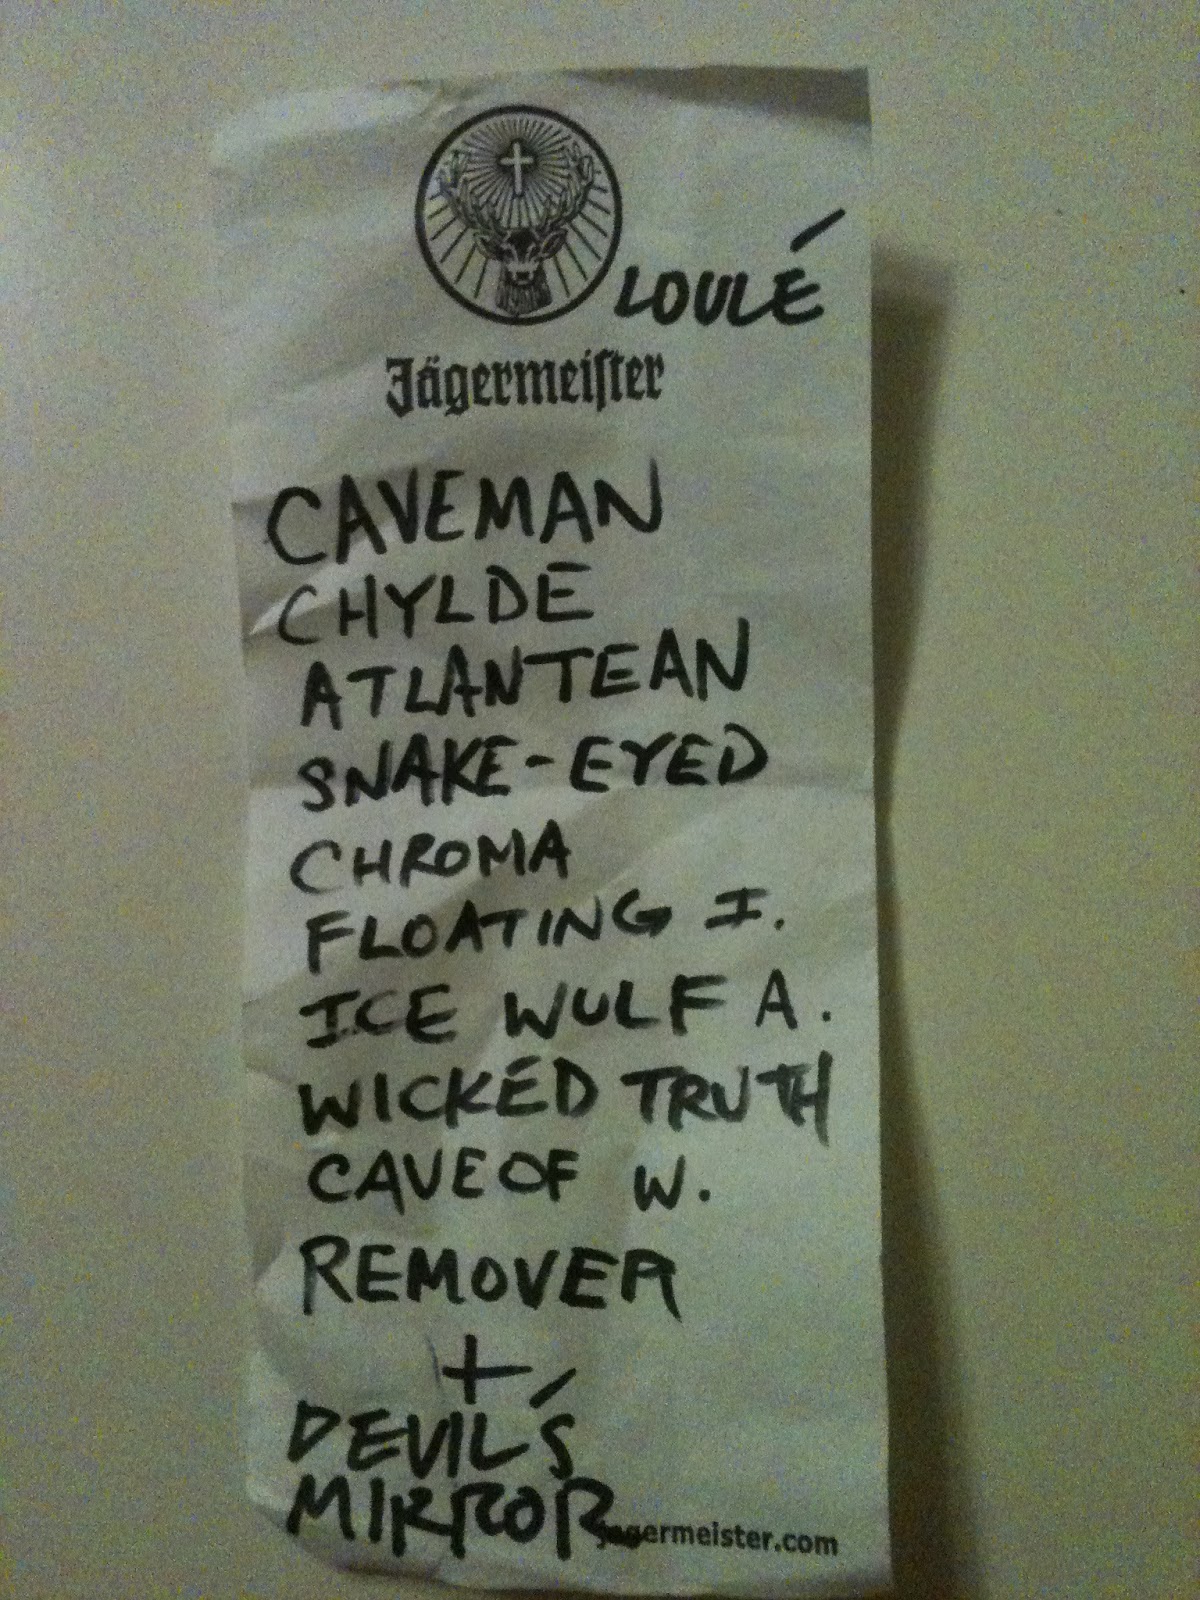 LOULÉ
Jägermeiſter
CAVEMAN
CHYLDE
ATLANTEAN
SNAKE-EYED
CHROMA
FLOATING I.
ICE WULF A.
WICKED TRUTH
CAVE OF W.
REMOVER
+
DEVIL'S
MIRROR
jagermeister.com